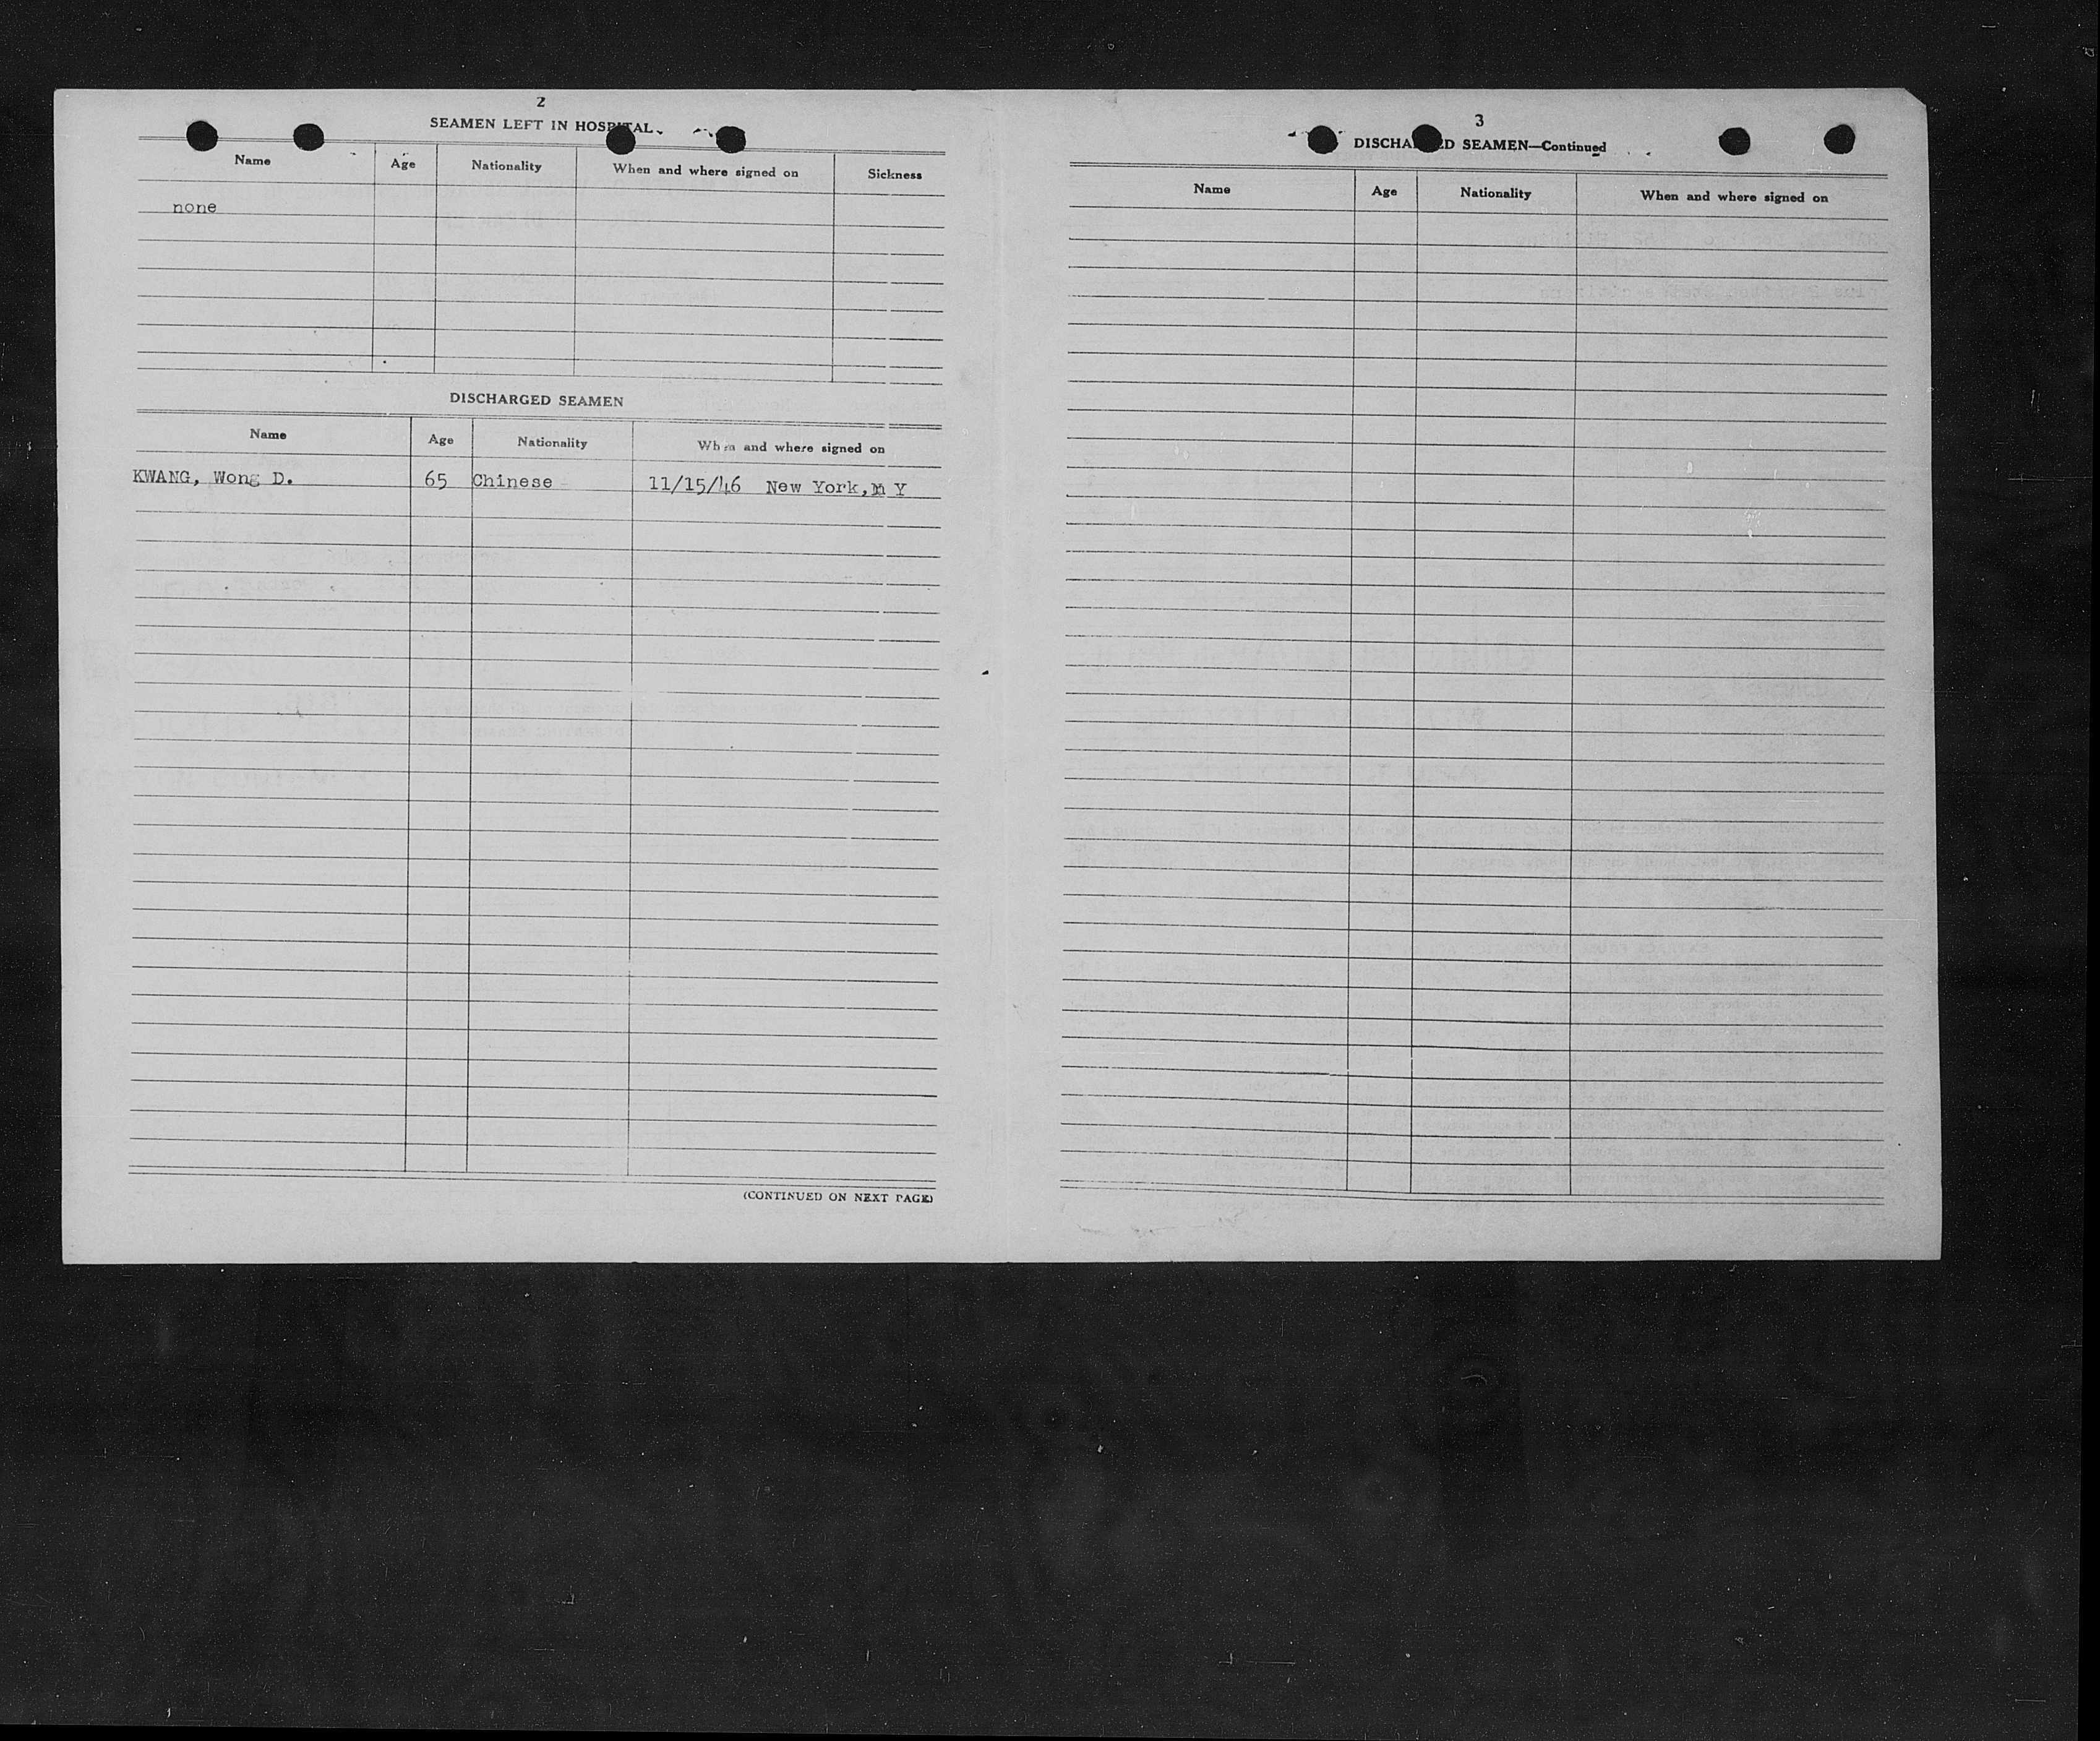 2
SEAMEN LEFT IN HOSPITAL
Name Age Nationality When and where signed on Sickness
none
DISCHARGED SEAMEN
Name Age Nationality When and where signed on
KWANG, Wong D. 65 Chinese 11/15/46 New York, N Y
(CONTINUED ON NEXT PAGE)
3
DISCHARGED SEAMEN—Continued
Name Age Nationality When and where signed on